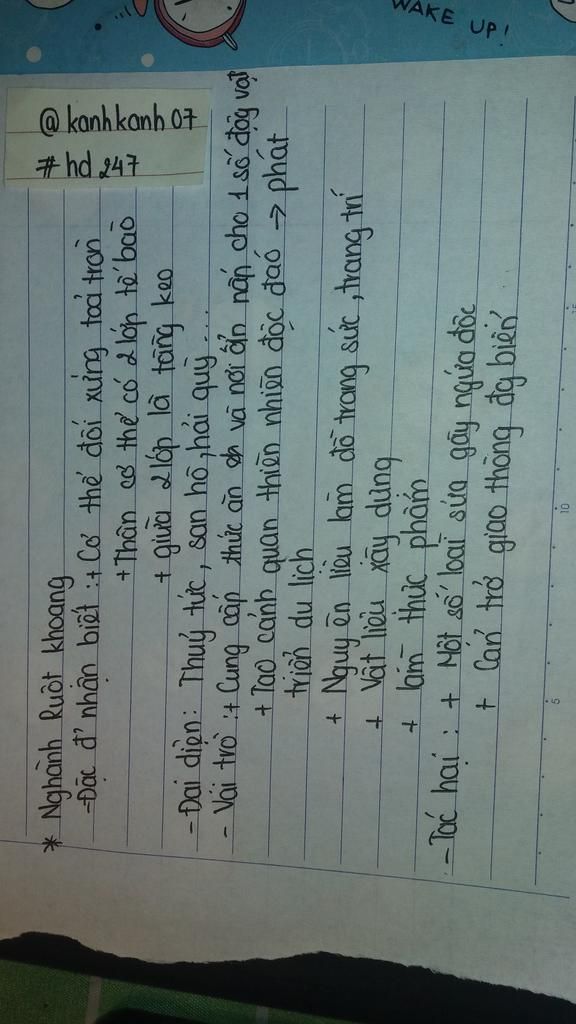 WAKE UP!
@kanhkanh07
#hd247
* Nghành Ruột khoang
- Đặc đ' nhận biết : + Cơ thể đối xứng toả tròn
+ Thân cơ thể có 2 lớp tế bào
+ giữa 2 lớp là tầng keo
- Đại diện: Thuỷ tức, san hô, hải quỳ...
- Vai trò : + Cung cấp thức ăn và nơi ẩn nấp cho 1 số động vật
+ Tạo cảnh quan thiên nhiên độc đáo → phát
triển du lịch
+ Nguyên liệu làm đồ trang sức, trang trí
+ Vật liệu xây dựng
+ làm thực phẩm
- Tác hại : + Một số loài sứa gây ngứa độc
+ Cản trở giao thông đg biển
5
10
15